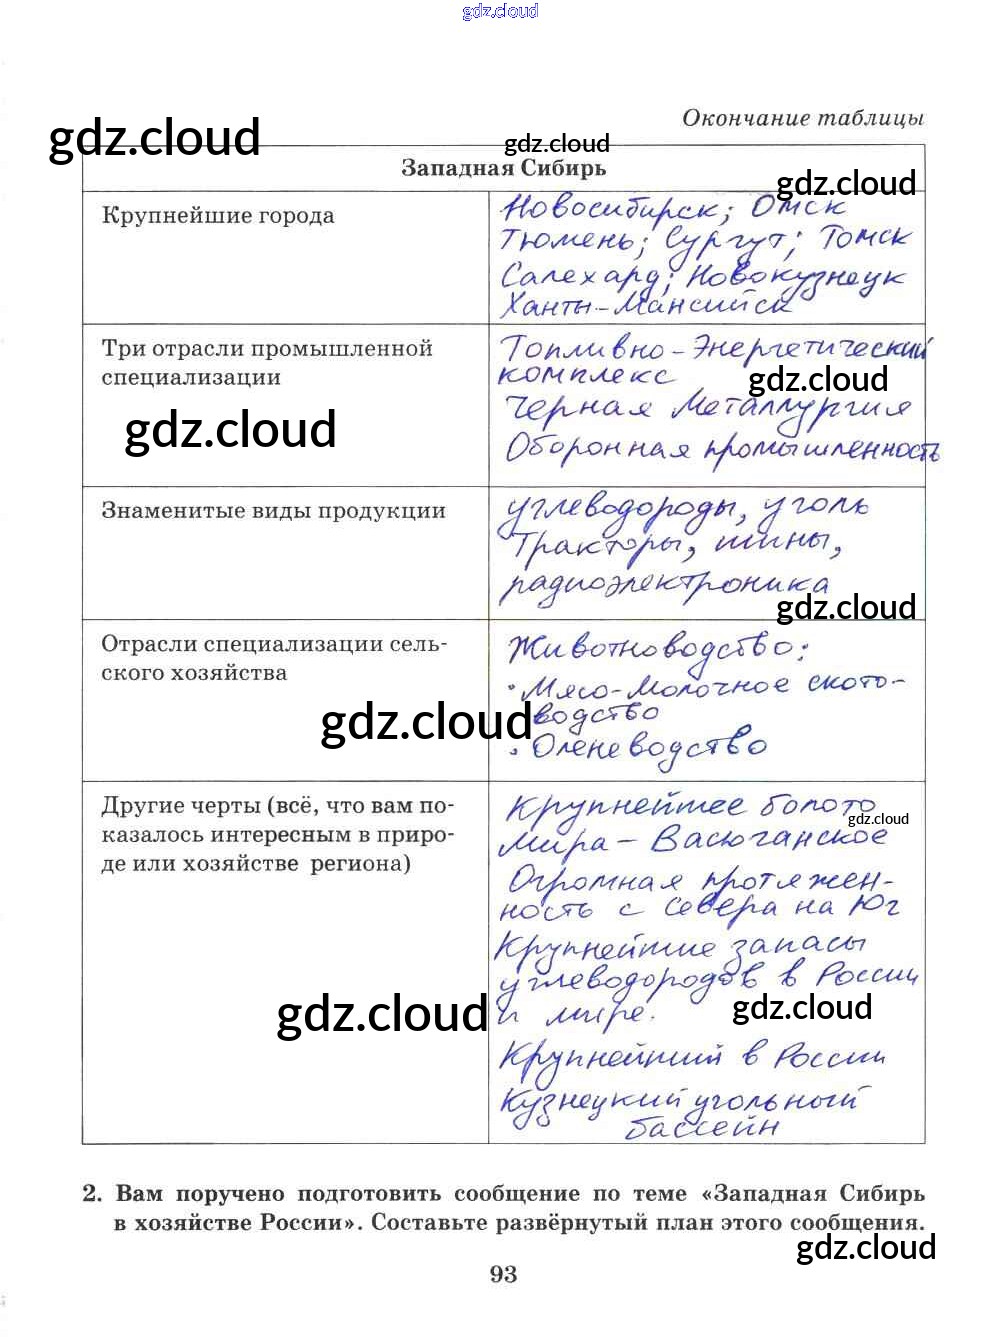 gdz.cloud
Окончание таблицы
gdz.cloud
gdz.cloud
Западная Сибирь
gdz.cloud
Крупнейшие города
Новосибирск; Омск
Тюмень; Сургут; Томск
Салехард; Новокузнецк
Ханты-Мансийск
Три отрасли промышленной
специализации
Топливно-Энергетический
комплекс
gdz.cloud
Черная Металлургия
gdz.cloud
Оборонная промышленность
Знаменитые виды продукции
углеводороды, уголь
Тракторы, шины,
радиоэлектроника
gdz.cloud
Отрасли специализации сель-
ского хозяйства
Животноводство:
• Мясо-Молочное ското-
водство
gdz.cloud
• Оленеводство
Другие черты (всё, что вам по-
казалось интересным в приро-
де или хозяйстве региона)
Крупнейшее болото
gdz.cloud
Мира – Васюганское
Огромная протяжен-
ность с Севера на Юг
Крупнейшие запасы
углеводородов в России
gdz.cloud
gdz.cloud
и мире.
Крупнейший в России
Кузнецкий угольный
бассейн
2. Вам поручено подготовить сообщение по теме «Западная Сибирь
в хозяйстве России». Составьте развёрнутый план этого сообщения.
gdz.cloud
93